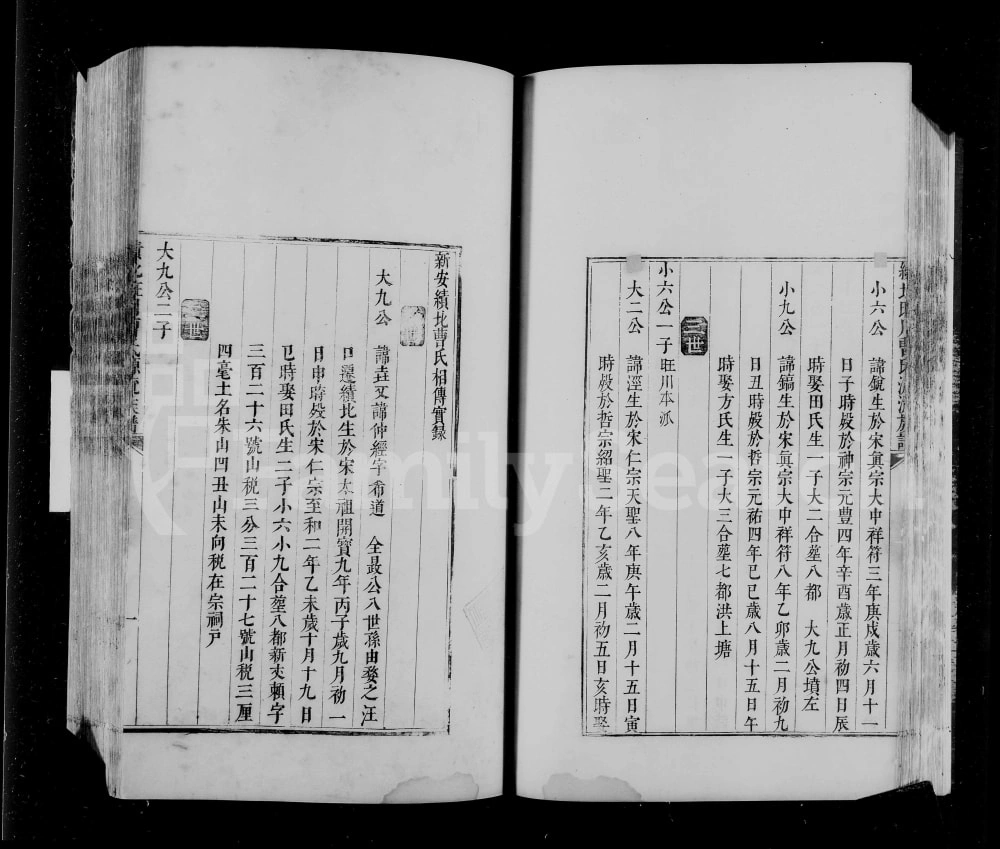 績北旺川曹氏源流族譜
小六公　諱鋭生於宋眞宗大中祥符三年庚戍歲六月十一
日子時殁於神宗元豊四年辛酉歲正月初四日辰
時娶田氏生一子大二合塟八都　大九公墳左
小九公　諱鎬生於宋眞宗大中祥符八年乙卯歲二月初九
日丑時殁於哲宗元祐四年巳巳歲八月十五日午
時娶方氏生一子大三合塟七都洪上塘
三世
小六公一子旺川本派
大二公　諱淫生於宋仁宗天聖八年庚午歲二月十五日寅
時殁於哲宗紹聖二年乙亥歲二月初五日亥時娶
新安績北曹氏相傳實録
世
大九公　諱垚又諱仲經字希道　全晸公八世孫由婺之汪
口遷績北生於宋太祖開寶九年丙子歲九月初一
日申時殁於宋仁宗至和二年乙未歲十月十九日
巳時娶田氏生二子小六小九合塟八都新夾頼字
三百二十六號山税三分三百二十七號山税三厘
四毫土名朱山凹丑山未向税在宗祠戸
二世
大九公二子
一